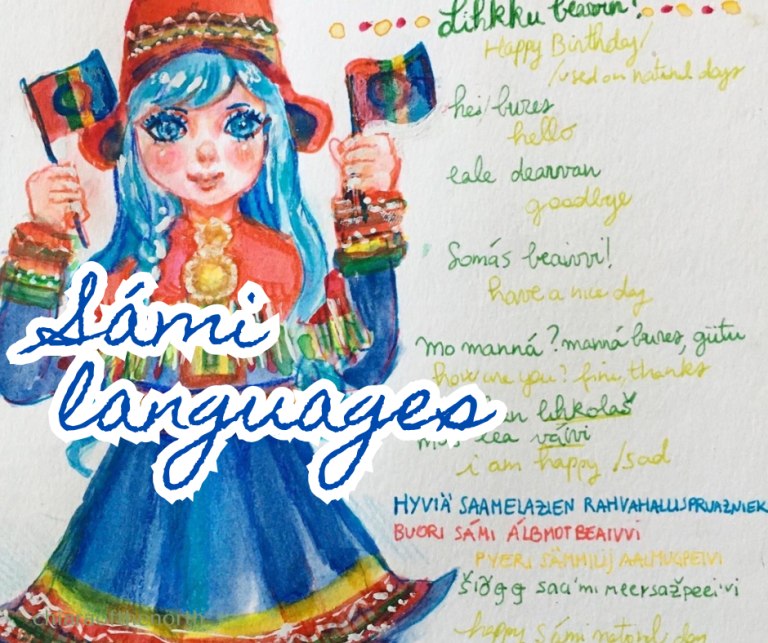 Lihkku beaivvi!
Happy Birthday/
/used on natinal days
hei/bures
hello
eale dearvan
goodbye
Somás beaivvi!
have a nice day
mo manná? manná bures, giitu
how are you? fine, thanks
Sámi
languages
lihkolaš
váivi
i am happy /sad
HYVIÄ SAAMELAZIEN
BUORI SÁMI ÁLBMOTBEAIVVI
PYERI SÄMMILIJ AALMUGPEIVI
šiõgg saa'mi meersažpeei'vi
happy sámi